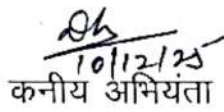 10/12/25
कनीय अभियंता